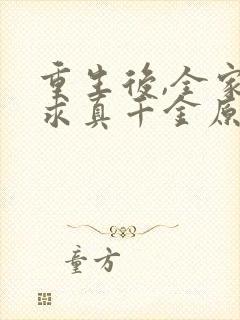 重生後,全家
求真千金原
童方